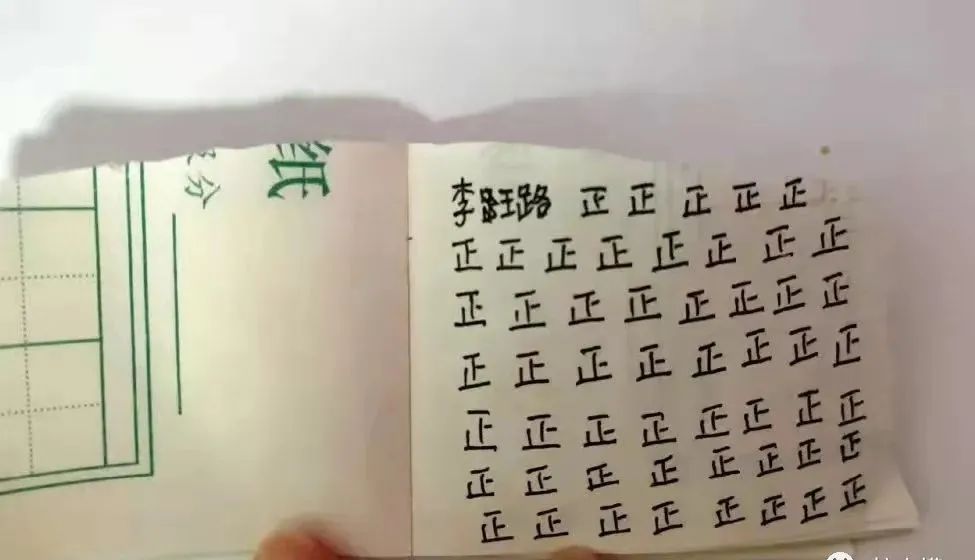 纸
分
李旺路 正 正 正 正 正
正 正 正 正 正 正 正 正
正 正 正 正 正 正 正 正
正 正 正 正 正 正 正 正
正 正 正 正 正 正 正 正
正 正 正 正 正 正 正 正
正 正 正 正 正 正 正 正